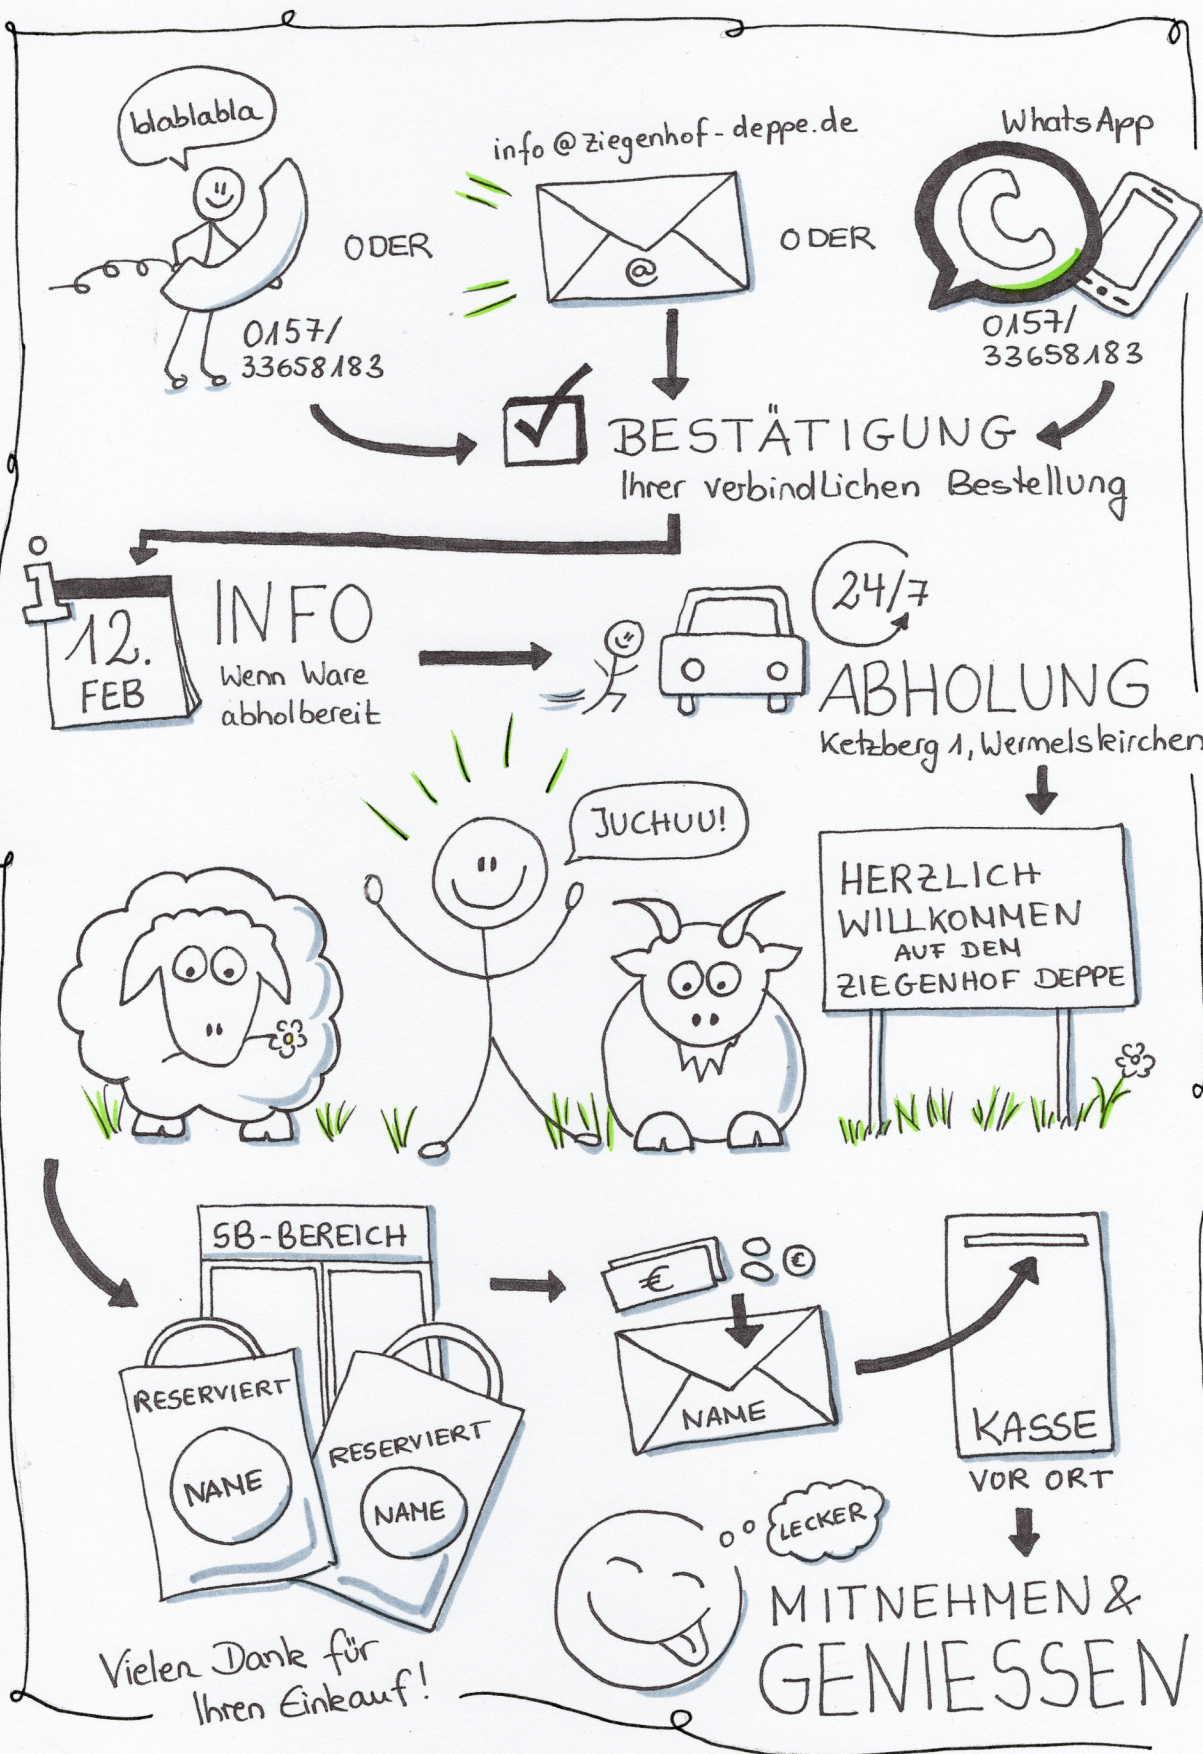 blablabla
info@ziegenhof-deppe.de
WhatsApp
ODER
@
ODER
0157/
33658183
0157/
33658183
BESTÄTIGUNG
Ihrer verbindlichen Bestellung
i
12.
FEB
INFO
Wenn Ware
abholbereit
24/7
ABHOLUNG
Ketzberg 1, Wermelskirchen
JUCHUU!
HERZLICH
WILLKOMMEN
AUF DEM
ZIEGENHOF DEPPE
SB-BEREICH
RESERVIERT
NAME
RESERVIERT
NAME
€
€
NAME
KASSE
VOR ORT
LECKER
MITNEHMEN &
GENIESSEN
Vielen Dank für
Ihren Einkauf!